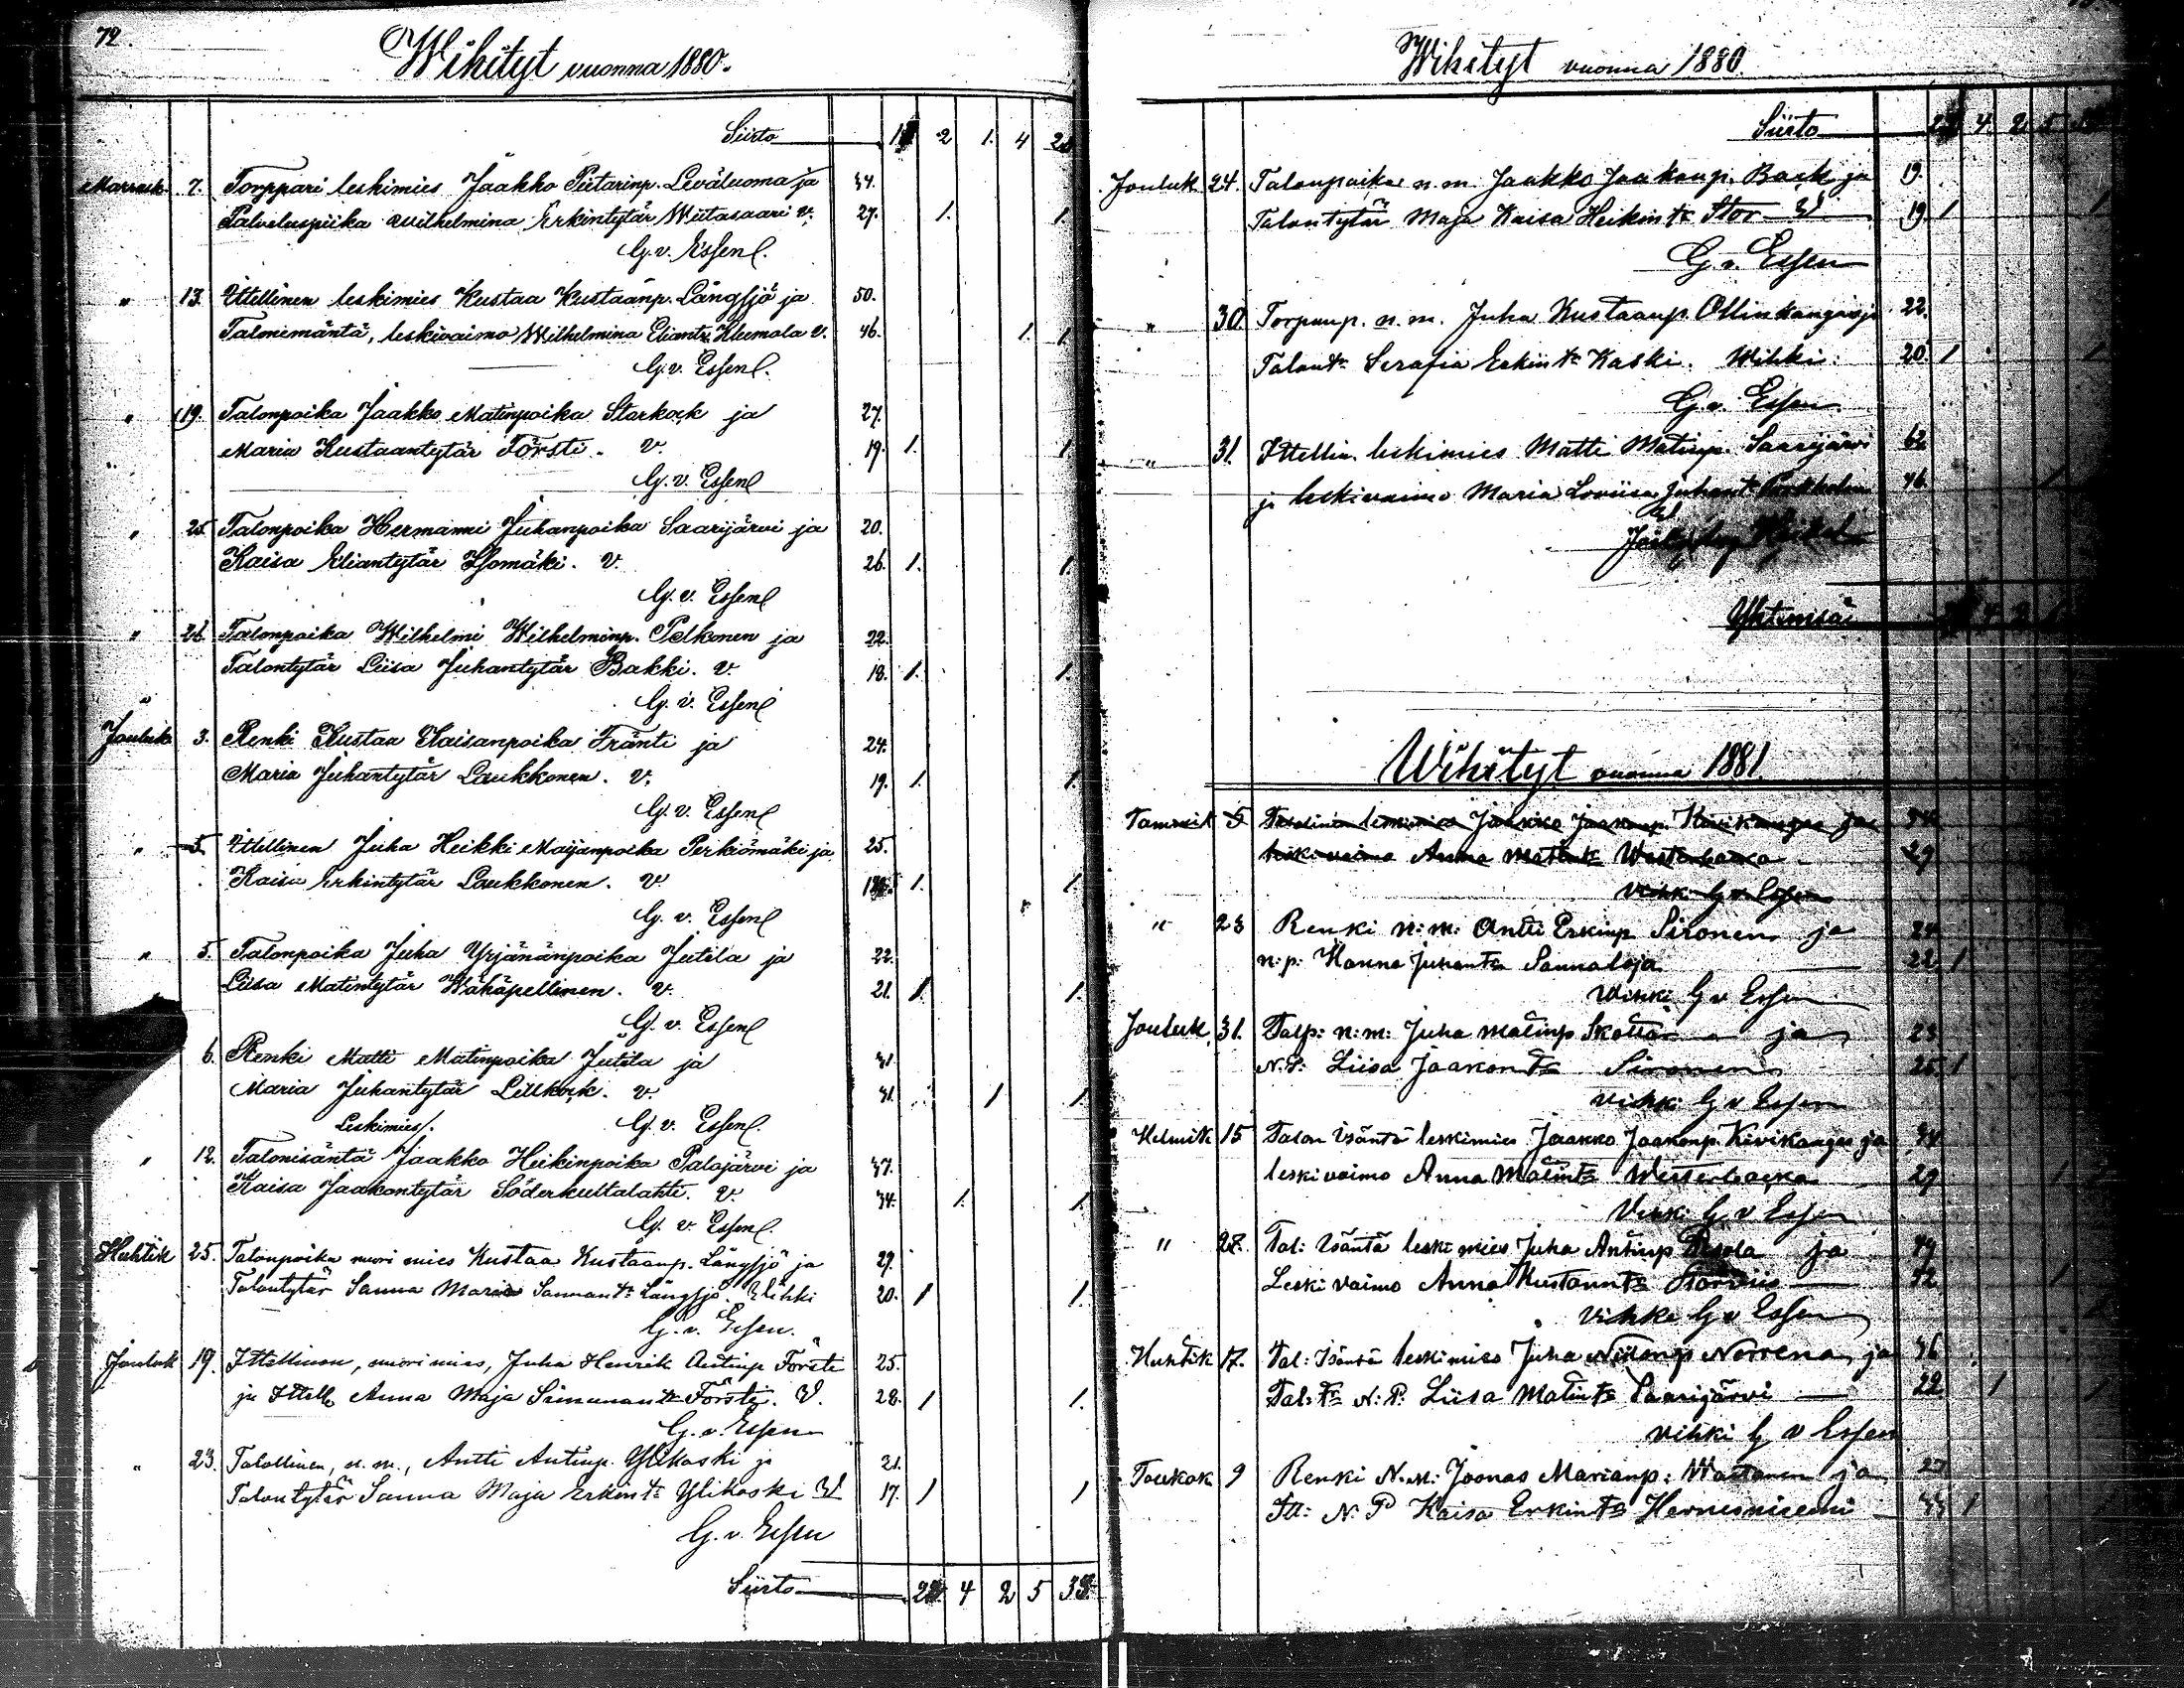 72.
Wihityt vuonna 1880.
Siirto 2 1. 4
Marrask 7. Torppari leskimies Jaakko Pietarinp. Leväluoma ja 34.
Palveluspiika Wilhelmina Erkintytär Wiitasaari v. 27. 1. 1.
G. v. Essen.
" 13. Ittellinen leskimies Kustaa Kustaanp. Långsjö ja 50.
Talonemäntä, leskivaimo Wilhelmina Eliantr. Klemola v. 46. 1. 1.
G. v. Essen.
" 19. Talonpoika Jaakko Matinpoika Storkock ja 27.
Maria Kustaantytär Försti. v. 19. 1. 1.
G. v. Essen
" 25. Talonpoika Hermanni Juhanpoika Saarijärvi ja 20.
Kaisa Eliantytär Isomäki. v. 26. 1. 1.
G. v. Essen
" 26. Talonpoika Wilhelmi Wilhelminp. Pelkonen ja 22.
Talontytär Liisa Juhantytär Bakki. v. 18. 1. 1.
G. v. Essen
Jouluk 3. Renki Kustaa Kaisanpoika Fränti ja 24.
Maria Juhantytär Laukkonen. v. 19. 1. 1.
G. v. Essen
" 5. Ittellinen Juha Heikki Maijanpoika Perkiömäki ja 25.
Kaisa Erkintytär Laukkonen. v. 1. 1.
G. v. Essen
" 5. Talonpoika Juha Yrjänänpoika Jutila ja 22.
Liisa Matintytär Wähäpellinen. v. 21. 1. 1.
G. v. Essen
6. Renki Matti Matinpoika Jutila ja 31.
Maria Juhantytär Lillkock. v. 31. 1 1.
Leskimies/. G. v. Essen.
" 12. Talonisäntä Jaakko Heikinpoika Palojärvi ja 37.
Kaisa Jaakontytär Söderkultalahti. v. 34. 1. 1.
G. v. Essen.
Huhtik 25. Talonpoika nuori mies Kustaa Kustaanp. Långsjö ja 29.
Talontytär Sanna Maria Sannantr Långsjö. Vihki 20. 1 1.
G. v. Essen.
Jouluk 19. Ittellinen, nuori mies, Juha Henrik Antinp Försti 25.
ja Ittell. Anna Maja Simunantr Försti. V. 28. 1 1.
G. v. Essen
" 23. Talollinen, n. m., Antti Antinp. Ylikoski ja 21.
Talontytär Sanna Maja Erkintr Ylikoski V 17. 1 1
G. v. Essen
Siirto 4 2 5
Wihityt vuonna 1880.
Siirto 4. 2 5
Jouluk 24. Talonpoika n. m. Jaakko Jaakonp. Back ja 19.
Talontytär Maja Kaisa Heikintr Stor V. 19. 1 1
G. v. Essen
" 30. Torpanp. n. m. Juha Kustaanp. Ollinkangas ja 22.
Talontr Serafia Erkintr Kaski. Wihki. 20. 1 1
G. v. Essen.
" 31. Ittellin. leskimies Matti Matinp. Saarijärvi 62
ja leskivaimo Maria Loviisa Juhantr 46. 1
Yhteensä
Wihityt vuonna 1881
Tammik 5 leskimies Jaakko Jaakonp. Kivikangas ja
leskivaimo Anna Matintr Westerbacka 29
Vihki G v Essen
" 23 Renki n: m: Antti Erkinp Sironen ja 24
n: p: Hanna Juhantr Saunaloja 22 1
Wihki G v Essen
Jouluk 31. Talp: n: m: Juha Matinp Skottar ja 23
N. P: Liisa Jaakontr Sironen 25. 1
Vihki G v Essen
Helmik 15 Talon Isäntä leskimies Jaakko Jaakonp. Kivikangas ja 34
leskivaimo Anna Matintr Westerbacka 29 1
Vihki G v Essen
" 28. Tal: Isäntä leskimies Juha Antinp Pesola ja 49
Leski vaimo Anna Kustaantr 42 1
Vihki G v Essen
Huhtik 17. Tal: Isäntä leskimies Juha Norrena ja 36
Tal: tr N: P: Liisa Matintr Saarijärvi 22 1 1
Vihki G v Essen
Toukok 9 Renki N: M: Joonas Marianp: ja 23
Itt: N: P Kaisa Erkintr Hernesniemi 1